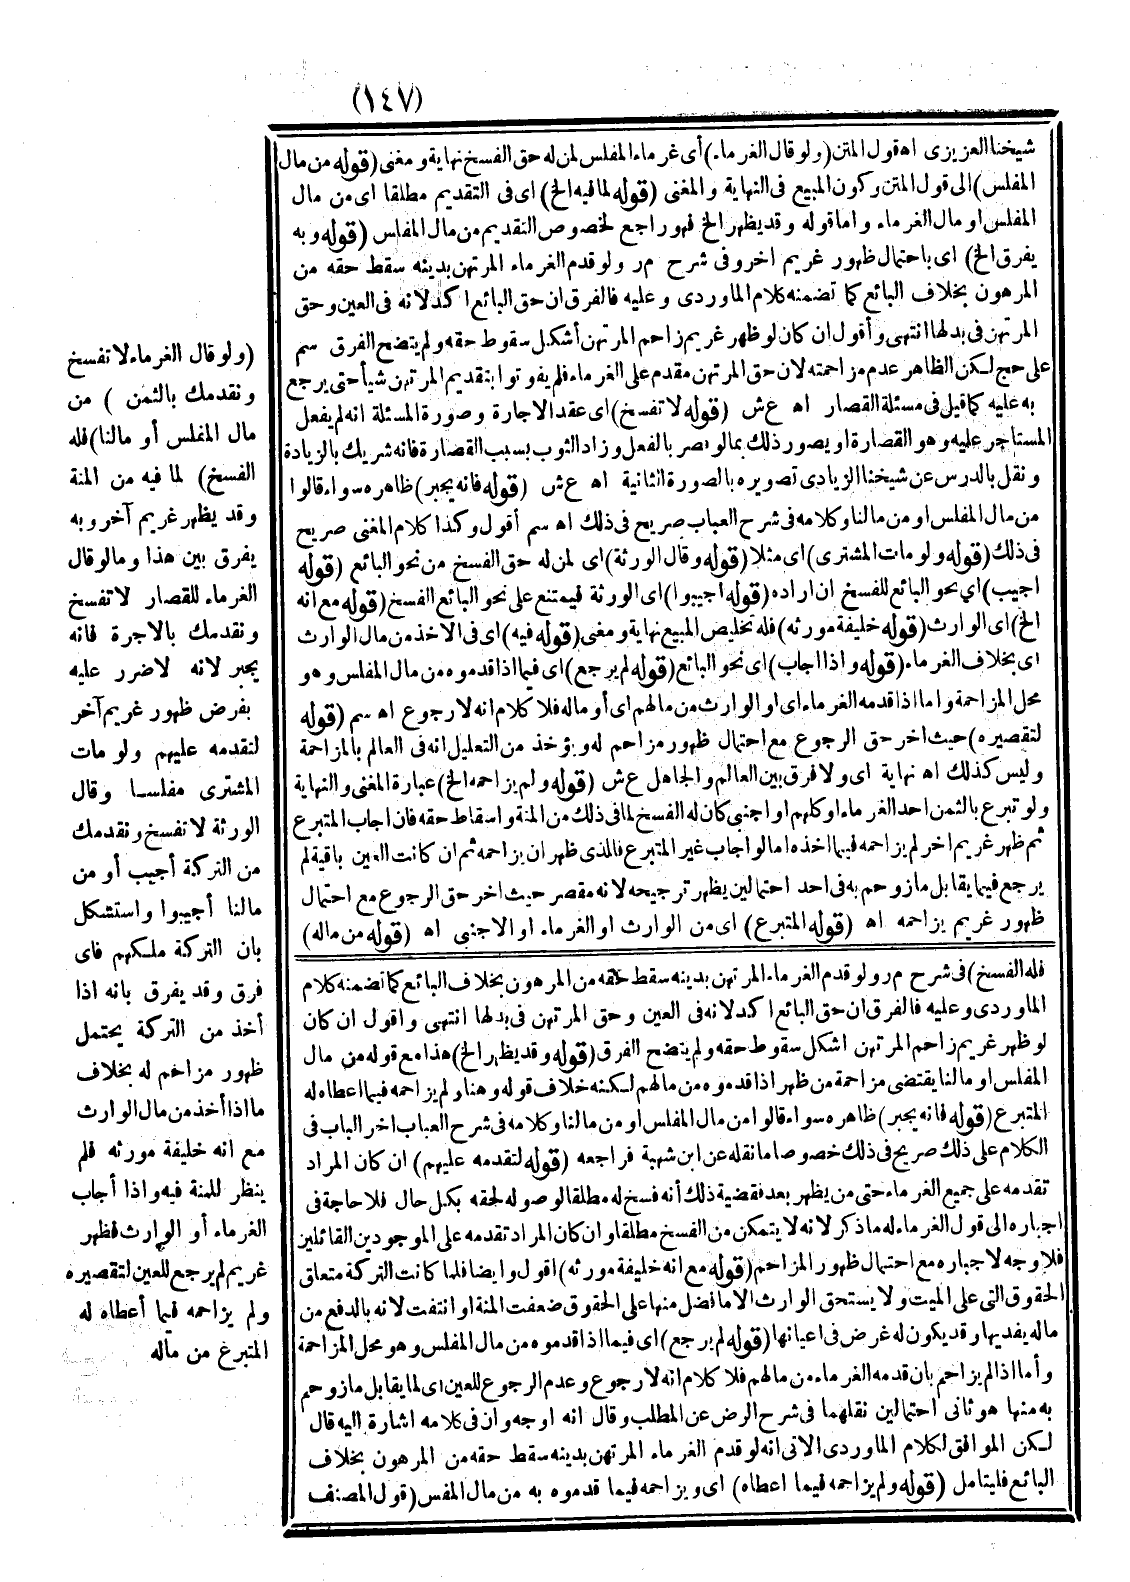 (١٤٧)
شيخنا العزيزى اه قول المتن (ولو قال الغرماء) أى غرماء المفلس لمن له حق الفسخ نهاية ومغنى (قوله من مال
المفلس) الى قول المتن وكون المبيع فى النهاية والمغنى (قوله لما فيه الخ) اى فى التقديم مطلقا اى من مال
المفلس او مال الغرماء واما قوله وقد يظهر الخ فهو راجع لخصوص التقديم من مال المفلس (قوله وبه
يفرق الخ) اى باحتمال ظهور غريم اخر وفى شرح مر ولو قدم الغرماء المرتهن بدينه سقط حقه من
المرهون بخلاف البائع كما تضمنه كلام الماوردى وعليه فالفرق ان حق البائع اكد لانه فى العين وحق
المرتهن فى بدلها انتهى وأقول ان كان لو ظهر غريم زاحم المرتهن أشكل سقوط حقه ولم يتضح الفرق سم
على حج لكن الظاهر عدم مزاحمته لان حق المرتهن مقدم على الغرماء فلم يفوتوا بتقديم المرتهن شيأ حتى يرجع
به عليه كما قيل فى مسئلة القصار اه عش (قوله لا تفسخ) اى عقد الاجارة وصورة المسئلة انه لم يفعل
المستاجر عليه وهو القصارة او يصور ذلك بما لو قصر بالفعل وزاد الثوب بسبب القصارة فانه شريك بالزيادة
ونقل بالدرس عن شيخنا الزيادى تصويره بالصورة الثانية اه عش (قوله فانه يجبر) ظاهره سواء قالوا
من مال المفلس او من مالنا وكلامه فى شرح العباب صريح فى ذلك اه سم أقول وكذا كلام المغنى صريح
فى ذلك (قوله ولو مات المشترى) اى مثلا (قوله وقال الورثة) اى لمن له حق الفسخ من نحو البائع (قوله
اجيب) اي نحو البائع للفسخ ان اراده (قوله اجيبوا) اى الورثة فيمتنع على نحو البائع الفسخ (قوله مع انه
الخ) اى الوارث (قوله خليفة مورثه) فله تخليص المبيع نهاية ومغنى (قوله فيه) اى فى الاخذ من مال الوارث
اى بخلاف الغرماء (قوله واذا اجاب) اى نحو البائع (قوله لم يرجع) اى فيما اذا قدموه من مال المفلس وهو
محل المزاحمة واما اذا قدمه الغرماء اى او الوارث من مالهم اى أو ماله فلا كلام انه لا رجوع اه سم (قوله
لتقصيره) حيث اخر حق الرجوع مع احتمال ظهور مزاحم له ويؤخذ من التعليل انه فى العالم بالمزاحمة
وليس كذلك اه نهاية اى ولا فرق بين العالم والجاهل عش (قوله ولم يزاحمه الخ) عبارة المغنى والنهاية
ولو تبرع بالثمن احد الغرماء او كلهم او اجنبى كان له الفسخ لما فى ذلك من المنة واسقاط حقه فان اجاب المتبرع
ثم ظهر غريم اخر لم يزاحمه فيما اخذه اما لو اجاب غير المتبرع فالذى ظهر ان يزاحمه ثم ان كانت العين باقية لم
يرجع فيما يقابل مازوحم به فى احد احتمالين يظهر ترجيحه لانه مقصر حيث اخر حق الرجوع مع احتمال
ظهور غريم يزاحمه اه (قوله المتبرع) اى من الوارث او الغرماء او الاجنبى اه (قوله من ماله)
فله الفسخ) فى شرح مر ولو قدم الغرماء المرتهن بدينه سقط حقه من المرهون بخلاف البائع كما تضمنه كلام
الماوردى وعليه فالفرق ان حق البائع اكد لانه فى العين وحق المرتهن فى بدلها انتهى واقول ان كان
لو ظهر غريم زاحم المرتهن اشكل سقوط حقه ولم يتضح الفرق (قوله وقد يظهر الخ) هذا مع قوله من مال
المفلس او مالنا يقتضى مزاحمة من ظهر اذا قدموه من مالهم لكنه خلاف قوله وهنا ولم يزاحمه فيما اعطاه له
المتبرع (قوله فانه يجبر) ظاهره سواء قالوا من مال المفلس او من مالنا وكلامه فى شرح العباب اخر الباب فى
الكلام على ذلك صريح فى ذلك خصوصا ما نقله عن ابن شهبة فراجعه (قوله لتقدمه عليهم) ان كان المراد
تقدمه على جميع الغرماء حتى من يظهر بعد فقضية ذلك أنه فسخ له مطلقا لوصوله لحقه بكل حال فلا حاجة فى
اجباره الى قول الغرماء له ما ذكر لانه لا يتمكن من الفسخ مطلقا وان كان المراد تقدمه على الموجودين القائلين
فلا وجه لاجباره مع احتمال ظهور المزاحم (قوله مع انه خليفة مورثه) اقول وايضا فلما كانت التركة متعلق
الحقوق التى على الميت ولا يستحق الوارث الا ما فضل منها على الحقوق ضعفت المنة او انتفت لانه بالدفع من
ماله يفديها وقد يكون له غرض فى اعيانها (قوله لم يرجع) اى فيما اذا قدموه من مال المفلس وهو محل المزاحمة
وأما اذا لم يزاحم بان قدمه الغرماء من مالهم فلا كلام انه لا رجوع وعدم الرجوع للعين اى لما يقابل مازوحم
به منها هو ثانى احتمالين نقلهما فى شرح الرض عن المطلب وقال انه اوجه وان فى كلامه اشارة اليه قال
لكن الموافق لكلام الماوردى الاتى انه لو قدم الغرماء المرتهن بدينه سقط حقه من المرهون بخلاف
البائع فليتامل (قوله ولم يزاحمه فيما اعطاه) اى ويزاحمه فيما قدموه به من مال المفلس (قول المصنف
(ولو قال الغرماء لا تفسخ
ونقدمك بالثمن) من
مال المفلس أو مالنا (فله
الفسخ) لما فيه من المنة
وقد يظهر غريم آخر وبه
يفرق بين هذا وما لو قال
الغرماء للقصار لا تفسخ
ونقدمك بالاجرة فانه
يجبر لانه لا ضرر عليه
بفرض ظهور غريم آخر
لتقدمه عليهم ولو مات
المشترى مفلسا وقال
الورثة لا تفسخ ونقدمك
من التركة أجيب أو من
مالنا أجيبوا واستشكل
بان التركة ملكهم فاى
فرق وقد يفرق بانه اذا
أخذ من التركة يحتمل
ظهور مزاحم له بخلاف
ما اذا أخذ من مال الوارث
مع انه خليفة مورثه فلم
ينظر للمنة فيه واذا أجاب
الغرماء أو الوارث فظهر
غريم لم يرجع للعين لتقصيره
ولم يزاحمه فيما أعطاه له
المتبرع من ماله